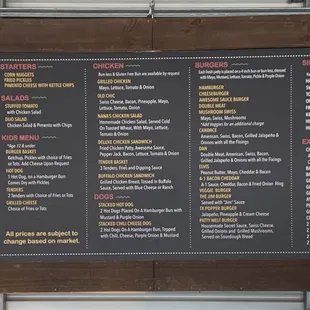 STARTERS
CORN NUGGETS
FRIED PICKLES
PIMENTO CHEESE WITH KETTLE CHIPS
SALADS
STUFFED TOMATO
with Chicken Salad
DUO SALAD
Chicken Salad & Pimento with Chips
KIDS MENU
*Age 12 & under
BURGER BASKET
Ketchup, Pickles with choice of Fries or
Tots, Add Cheese Upon Request
HOT DOG
1 Hot Dog, on a Hamburger Bun
Comes Dry with Pickles
TENDERS
2 Tenders with Choice of Fries or Tots
GRILLED CHEESE
Choice of Fries or Tots
All prices are subject to
change based on market.
CHICKEN
Bun-less & Gluten Free Bun are available by request
GRILLED CHICKEN
Mayo, Lettuce, Tomato & Onion
OLD CHIC
Swiss Cheese, Bacon, Pineapple, Mayo,
Lettuce, Tomato, Onion
NANA'S CHICKEN SALAD
Homemade Chicken Salad, Served Cold
On Toasted Bread, With Mayo, Lettuce,
Tomato & Onion
DELUXE CHICKEN SANDWICH
Fried Chicken Patty, Awesome Sauce,
Pepper Jack, Bacon, Lettuce, Tomato & Onion
TENDER BASKET
3 Tenders, Fries and Dipping Sauce
BUFFALO CHICKEN SANDWICH
Grilled Chicken Breast, Tossed In Buffalo
Sauce, Served with Blue Cheese or Ranch
DOGS
STACKED HOT DOG
2 Hot Dogs Placed On A Hamburger Bun with
Mustard & Purple Onion
STACKED CHILI CHEESE DOG
2 Hot Dogs On A Hamburger Bun, Topped
with Chili, Cheese, Purple Onion & Mustard
BURGERS
Each fresh patty is placed on a 4-inch bun or bun-less, dressed
with Mayo, Mustard, Lettuce, Tomato, Pickle & Purple Onion
HAMBURGER
CHEESEBURGER
AWESOME SAUCE BURGER
DOUBLE MEAT
MUSHROOM SWISS
*Add Veggies for an additional charge
CANDACE
American, Swiss, Bacon, Grilled Jalapeño &
Onions with all the Fixings
DAN
Double Meat, American, Swiss, Bacon,
Grilled Jalapeño & Onions with all the fixings
ELVIS
Peanut Butter, Mayo, Cheddar & Bacon
A-1 BACON CHEDDAR
A-1 Sauce, Cheddar, Bacon & Fried Onion
VEGGIE BURGER
THE JIM BURGER
Served with "Jim" Sauce
TX POPPER BURGER
Jalapeño, Pineapple & Cream Cheese
PATTY MELT BURGER
Housemade Secret Sauce, Swiss Cheese,
Grilled Onions and Grilled Mushrooms,
Served on Sourdough Bread